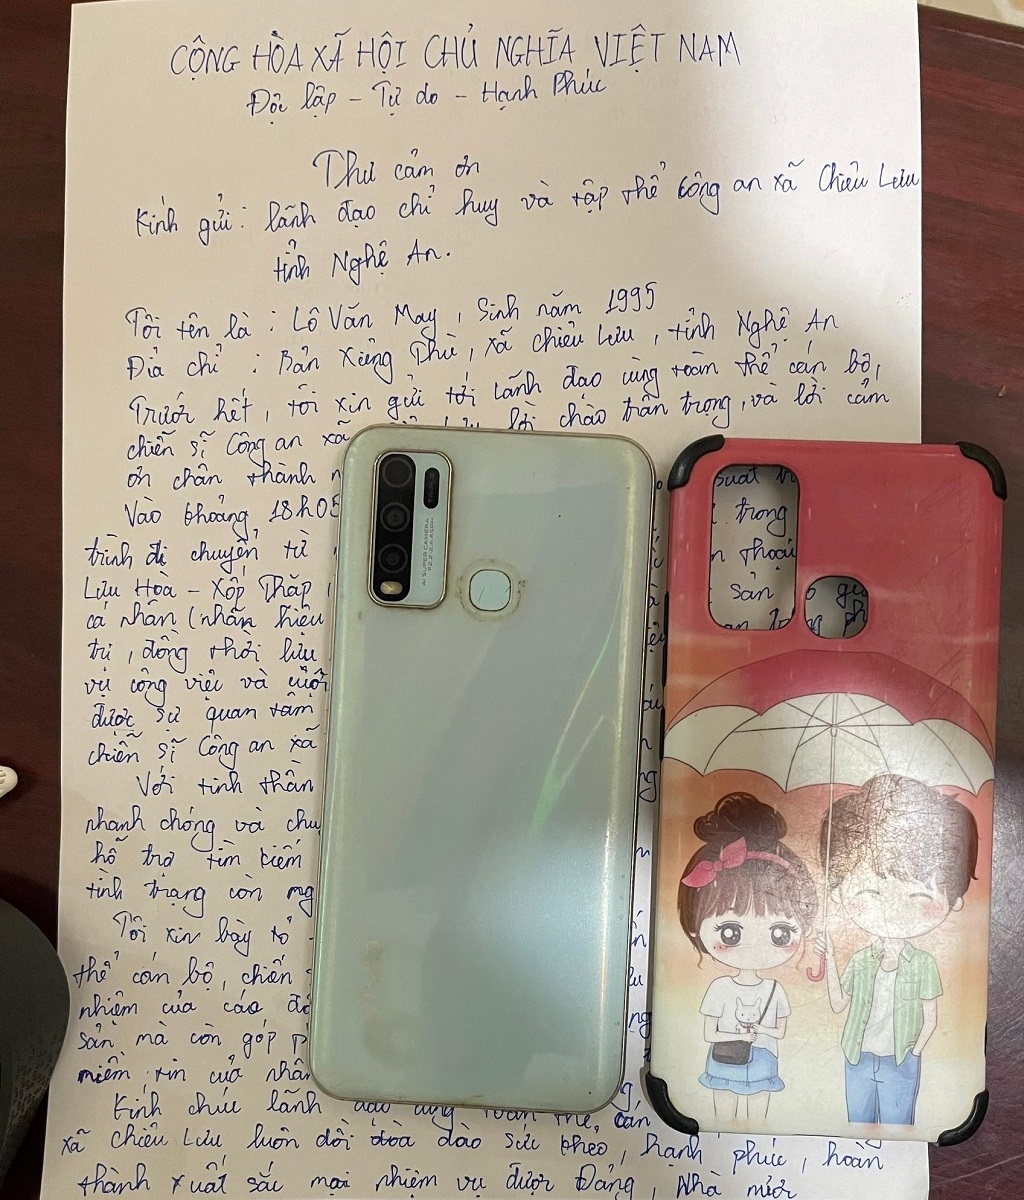 CỘNG HÒA XÃ HỘI CHỦ NGHĨA VIỆT NAM
Độc lập - Tự do - Hạnh Phúc
Thư cảm ơn
Kính gửi: lãnh đạo chỉ huy và tập thể công an xã Chiêu Lưu
tỉnh Nghệ An.
Tôi tên là: Lô Văn May, Sinh năm 1995
Địa chỉ: Bản Xiêng Thù, xã chiêu Lưu, tỉnh Nghệ An
Trước hết, tôi xin gửi tới lãnh đạo cùng toàn thể cán bộ,
chiến sĩ Công an xã Lưu lời chào trân trọng, và lời cảm
ơn chân thành
Vào khoảng 18h05
trình di chuyển từ
Lưu Hòa - Xốp Thặp
cá nhân (nhãn hiệu
trị, đồng thời lưu
vụ công việc và cuộc
được sự quan tâm
chiến sĩ Công an xã
Với tinh thần
nhanh chóng và chu
hỗ trợ tìm kiếm
tình trạng còn ng
Tôi xin bày tỏ
thể cán bộ, chiến
nhiệm của các đồ
sản mà còn góp p
niềm tin của nhân
Kính chúc lãnh đạo cùng toàn thể, cán
xã chiêu Lưu luôn dồi dào sức khỏe, hạnh phúc, hoàn
thành xuất sắc mọi nhiệm vụ được Đảng, Nhà nước
AI SUPER CAMERA
suất
trong
thoại
sản